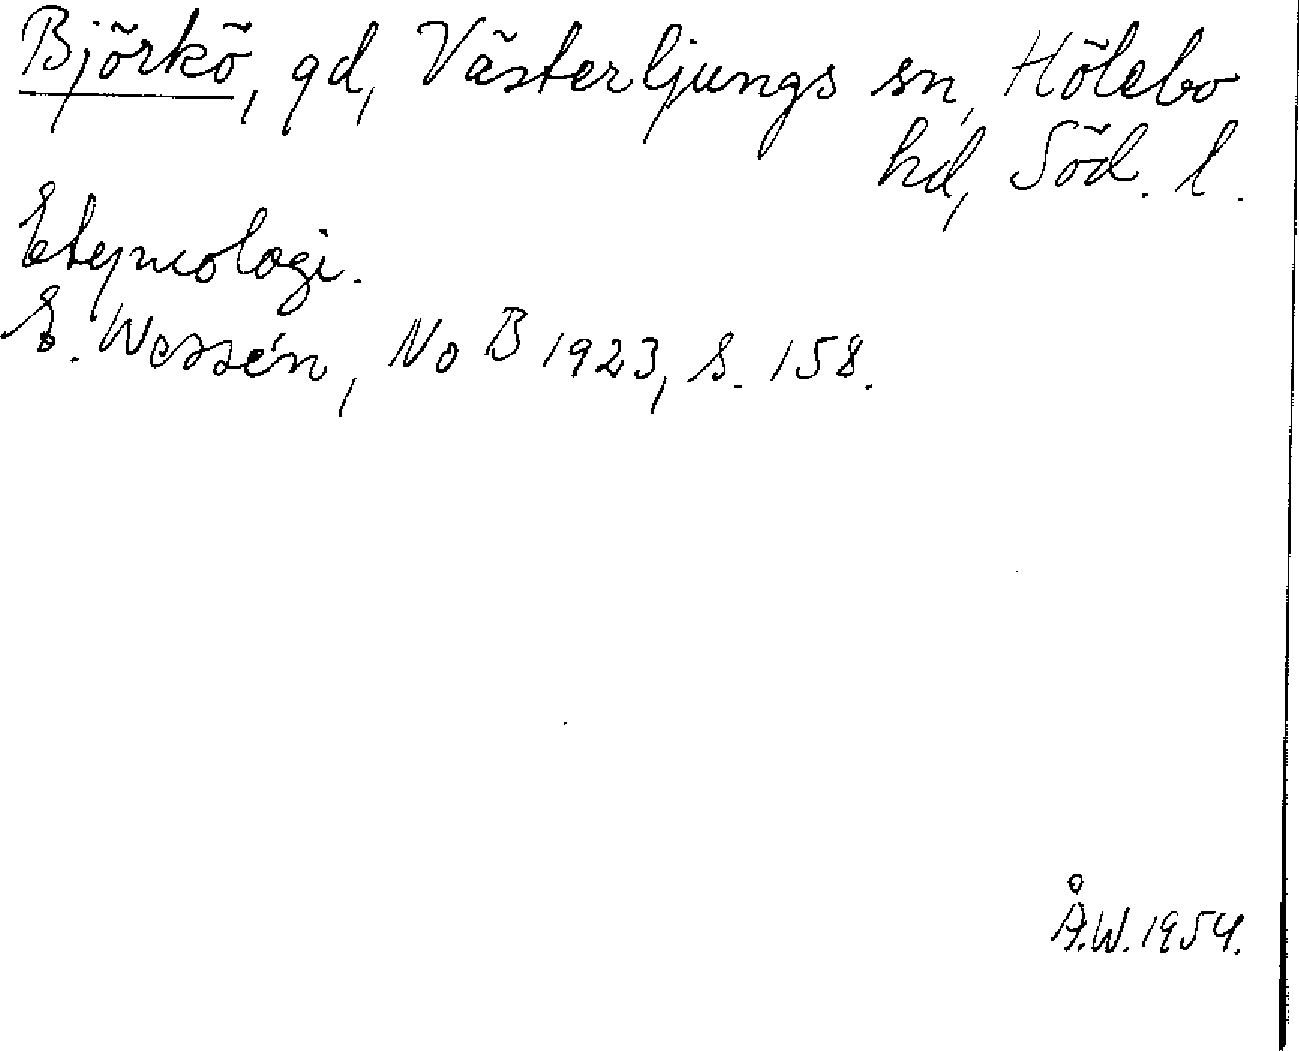 Björkö, gd, Västerljungs sn, Hölebo
hd, Söd. l.
Etymologi.
E. Wessén, NoB 1923, s. 158.
Å.W. 1954.